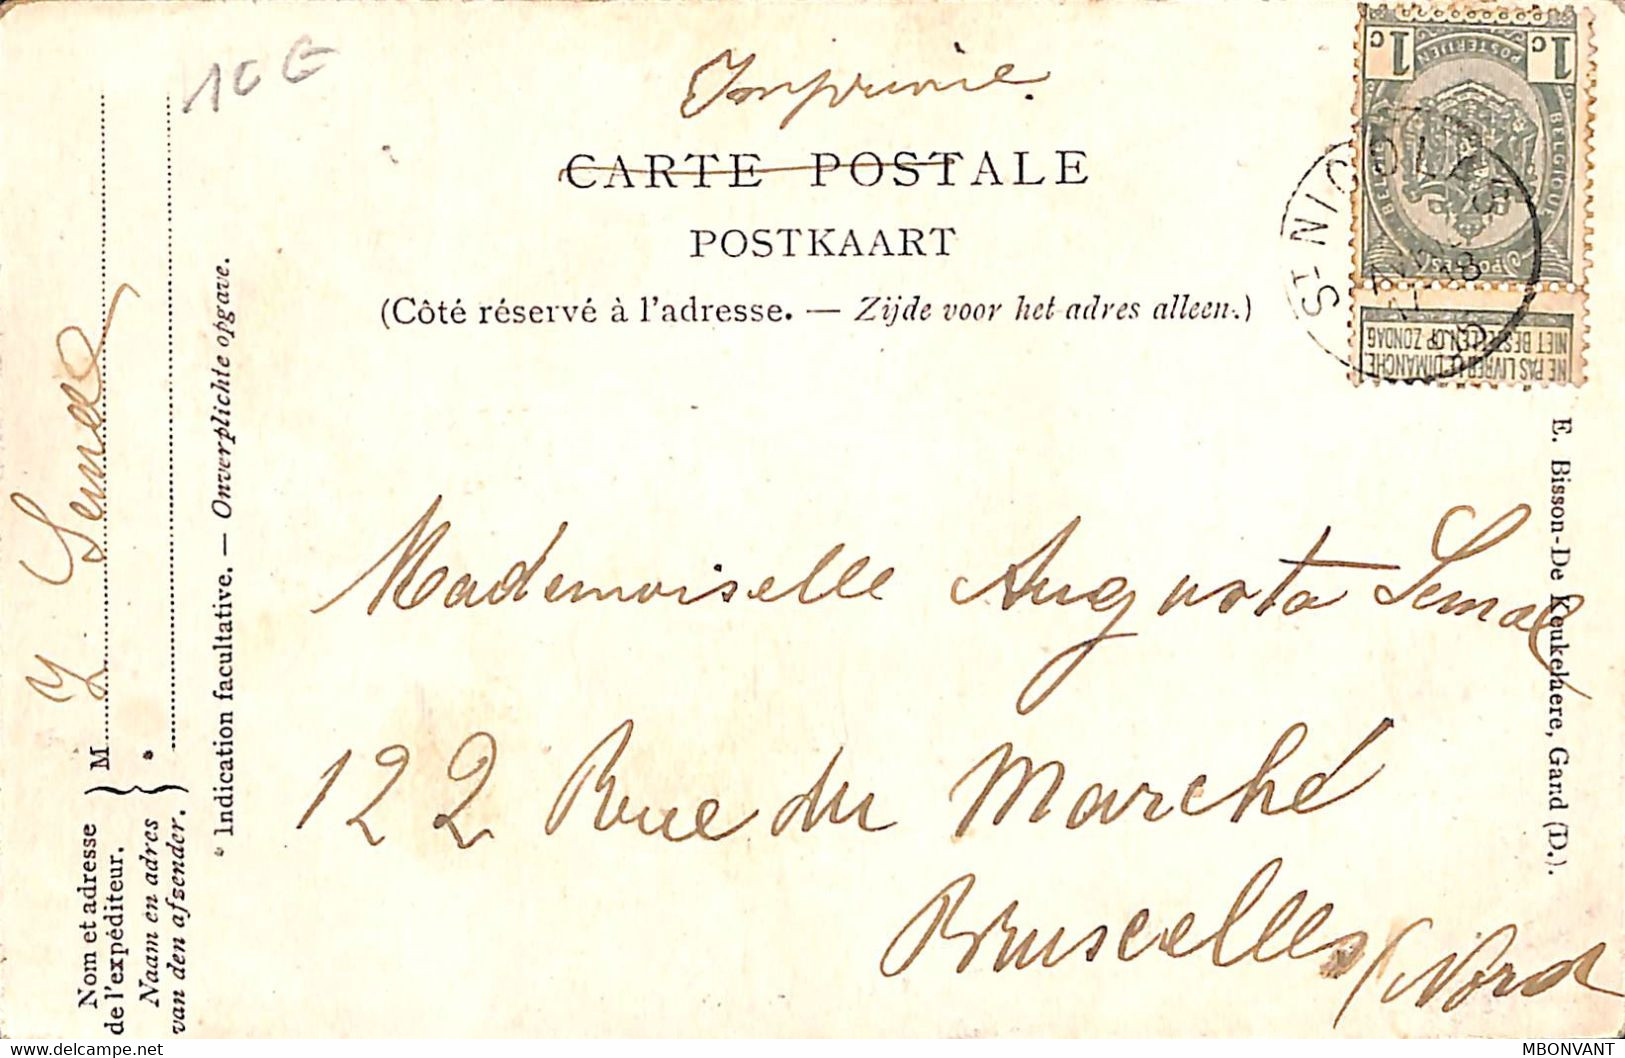 10 €
Imprimé.
CARTE POSTALE
POSTKAART
(Côté réservé à l'adresse. — Zijde voor het adres alleen.)
1c 1c
POSTERIJEN
BELGIQUE
NIET BESTELLEN OP ZONDAG
NE PAS LIVRER LE DIMANCHE
ST NICOLAS
Mademoiselle Augusta Semal
122 Rue du Marché
Bruscelles / Nord
Nom et adresse de l'expéditeur. } M
Naam en adres van den afzender. } *
* Indication facultative. — Onverplichte opgave.
E. Bisson-De Keukelaere, Gand (D.).
MBONVANT